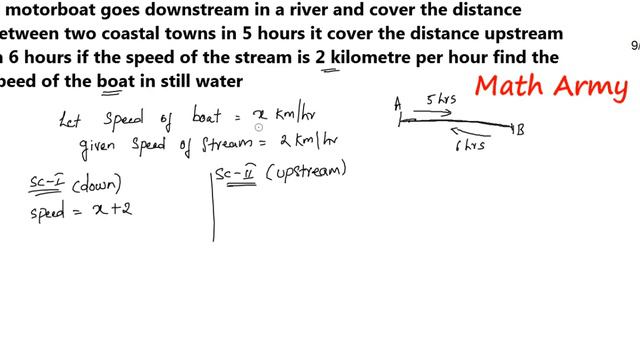 motorboat goes downstream in a river and cover the distance
etween two coastal towns in 5 hours it cover the distance upstream
n 6 hours if the speed of the stream is 2 kilometre per hour find the
peed of the boat in still water
Math Army
Let speed of boat = x km/hr
given speed of stream = 2 km/hr
A 5 hrs
B
6 hrs
SC-I (down)
speed = x+2
SC-II (upstream)
9/